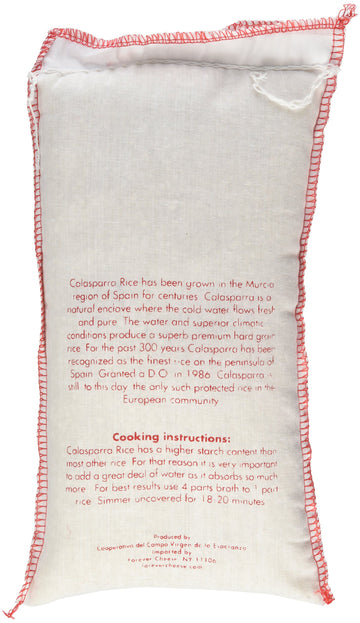 Calasparra Rice has been grown in the Murcia
region of Spain for centuries. Calasparra is a
natural enclave where the cold water flows fresh
and pure. The water and superior climatic
conditions produce a superb premium hard grain
rice. For the past 300 years Calasparra has been
recognized as the finest rice on the peninsula of
Spain. Granted a D.O. in 1986, Calasparra is
still to this day, the only such protected rice in the
European community.
Cooking instructions:
Calasparra Rice has a higher starch content than
most other rice. For that reason it is very important
to add a great deal of water as it absorbs so much
more. For best results use 4 parts broth to 1 part
rice. Simmer uncovered for 18-20 minutes.
Produced by
Cooperativa del Campo Virgen de la Esperanza
Imported by
Forever Cheese, NY 11106
forevercheese.com